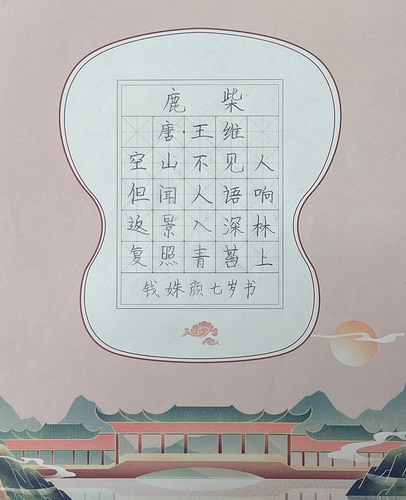 鹿柴
唐·王维
空山不见人
但闻人语响
返景入深林
复照青苔上
钱姝颜七岁书